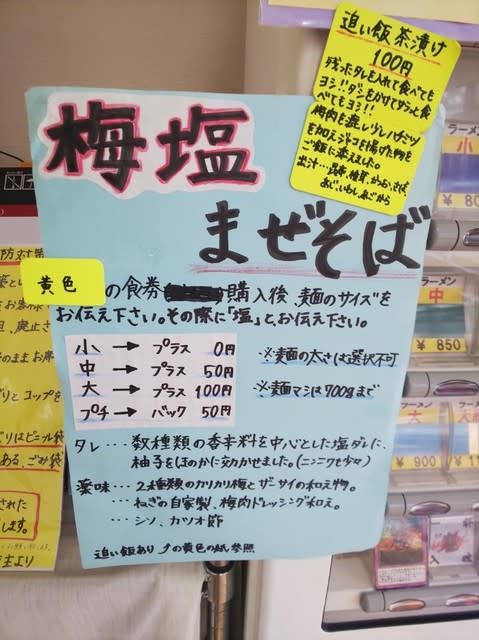 追い飯茶漬け
100円
残ったタレを入れて食べても
ヨシ!!ダシをかけてサラっと食
べてもヨシ!!
梅肉を裏ごしハチミツ
を加えジャコを揚げた物を
ご飯に添えました。
出汁…昆布、椎茸、かつお、さば
あじ、いわし、あごから
梅塩
まぜそば
黄色 の食券 購入後、麺のサイズを
お伝え下さい。その際に「塩」と、お伝え下さい。
小 → プラス 0円
中 → プラス 50円
大 → プラス 100円
プチ → バック 50円
※麺の太さは選択不可
※麺マシは700gまで
タレ・・・数種類の香辛料を中心とした塩ダレに、
柚子をほのかに効かせました。(ニンニクも少々)
薬味・・・2種類のカリカリ梅とザーサイの和え物。
・・・ねぎの自家製、梅肉ドレッシング和え。
・・・シソ、カツオ節
追い飯あり ↑の黄色の紙参照
防対策
のままお席
りとコップを
りはビニール袋
ある、ごみ袋
された
します。
主より
ラーメン
小
¥ 80
ラーメン
中
¥ 850
ラーメン
大
¥ 900
¥ 1